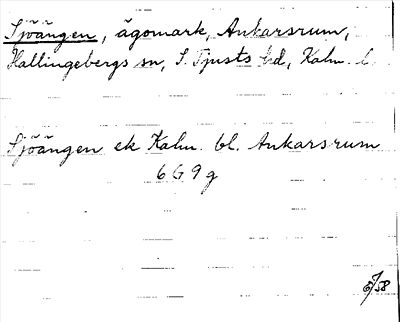 Sjöängen, ägomark, Ankarsrum,
Hallingebergs sn, S. Tjusts hd, Kalm. l.
Sjöängen ek Kalm. bl. Ankarsrum
6G9g
/58